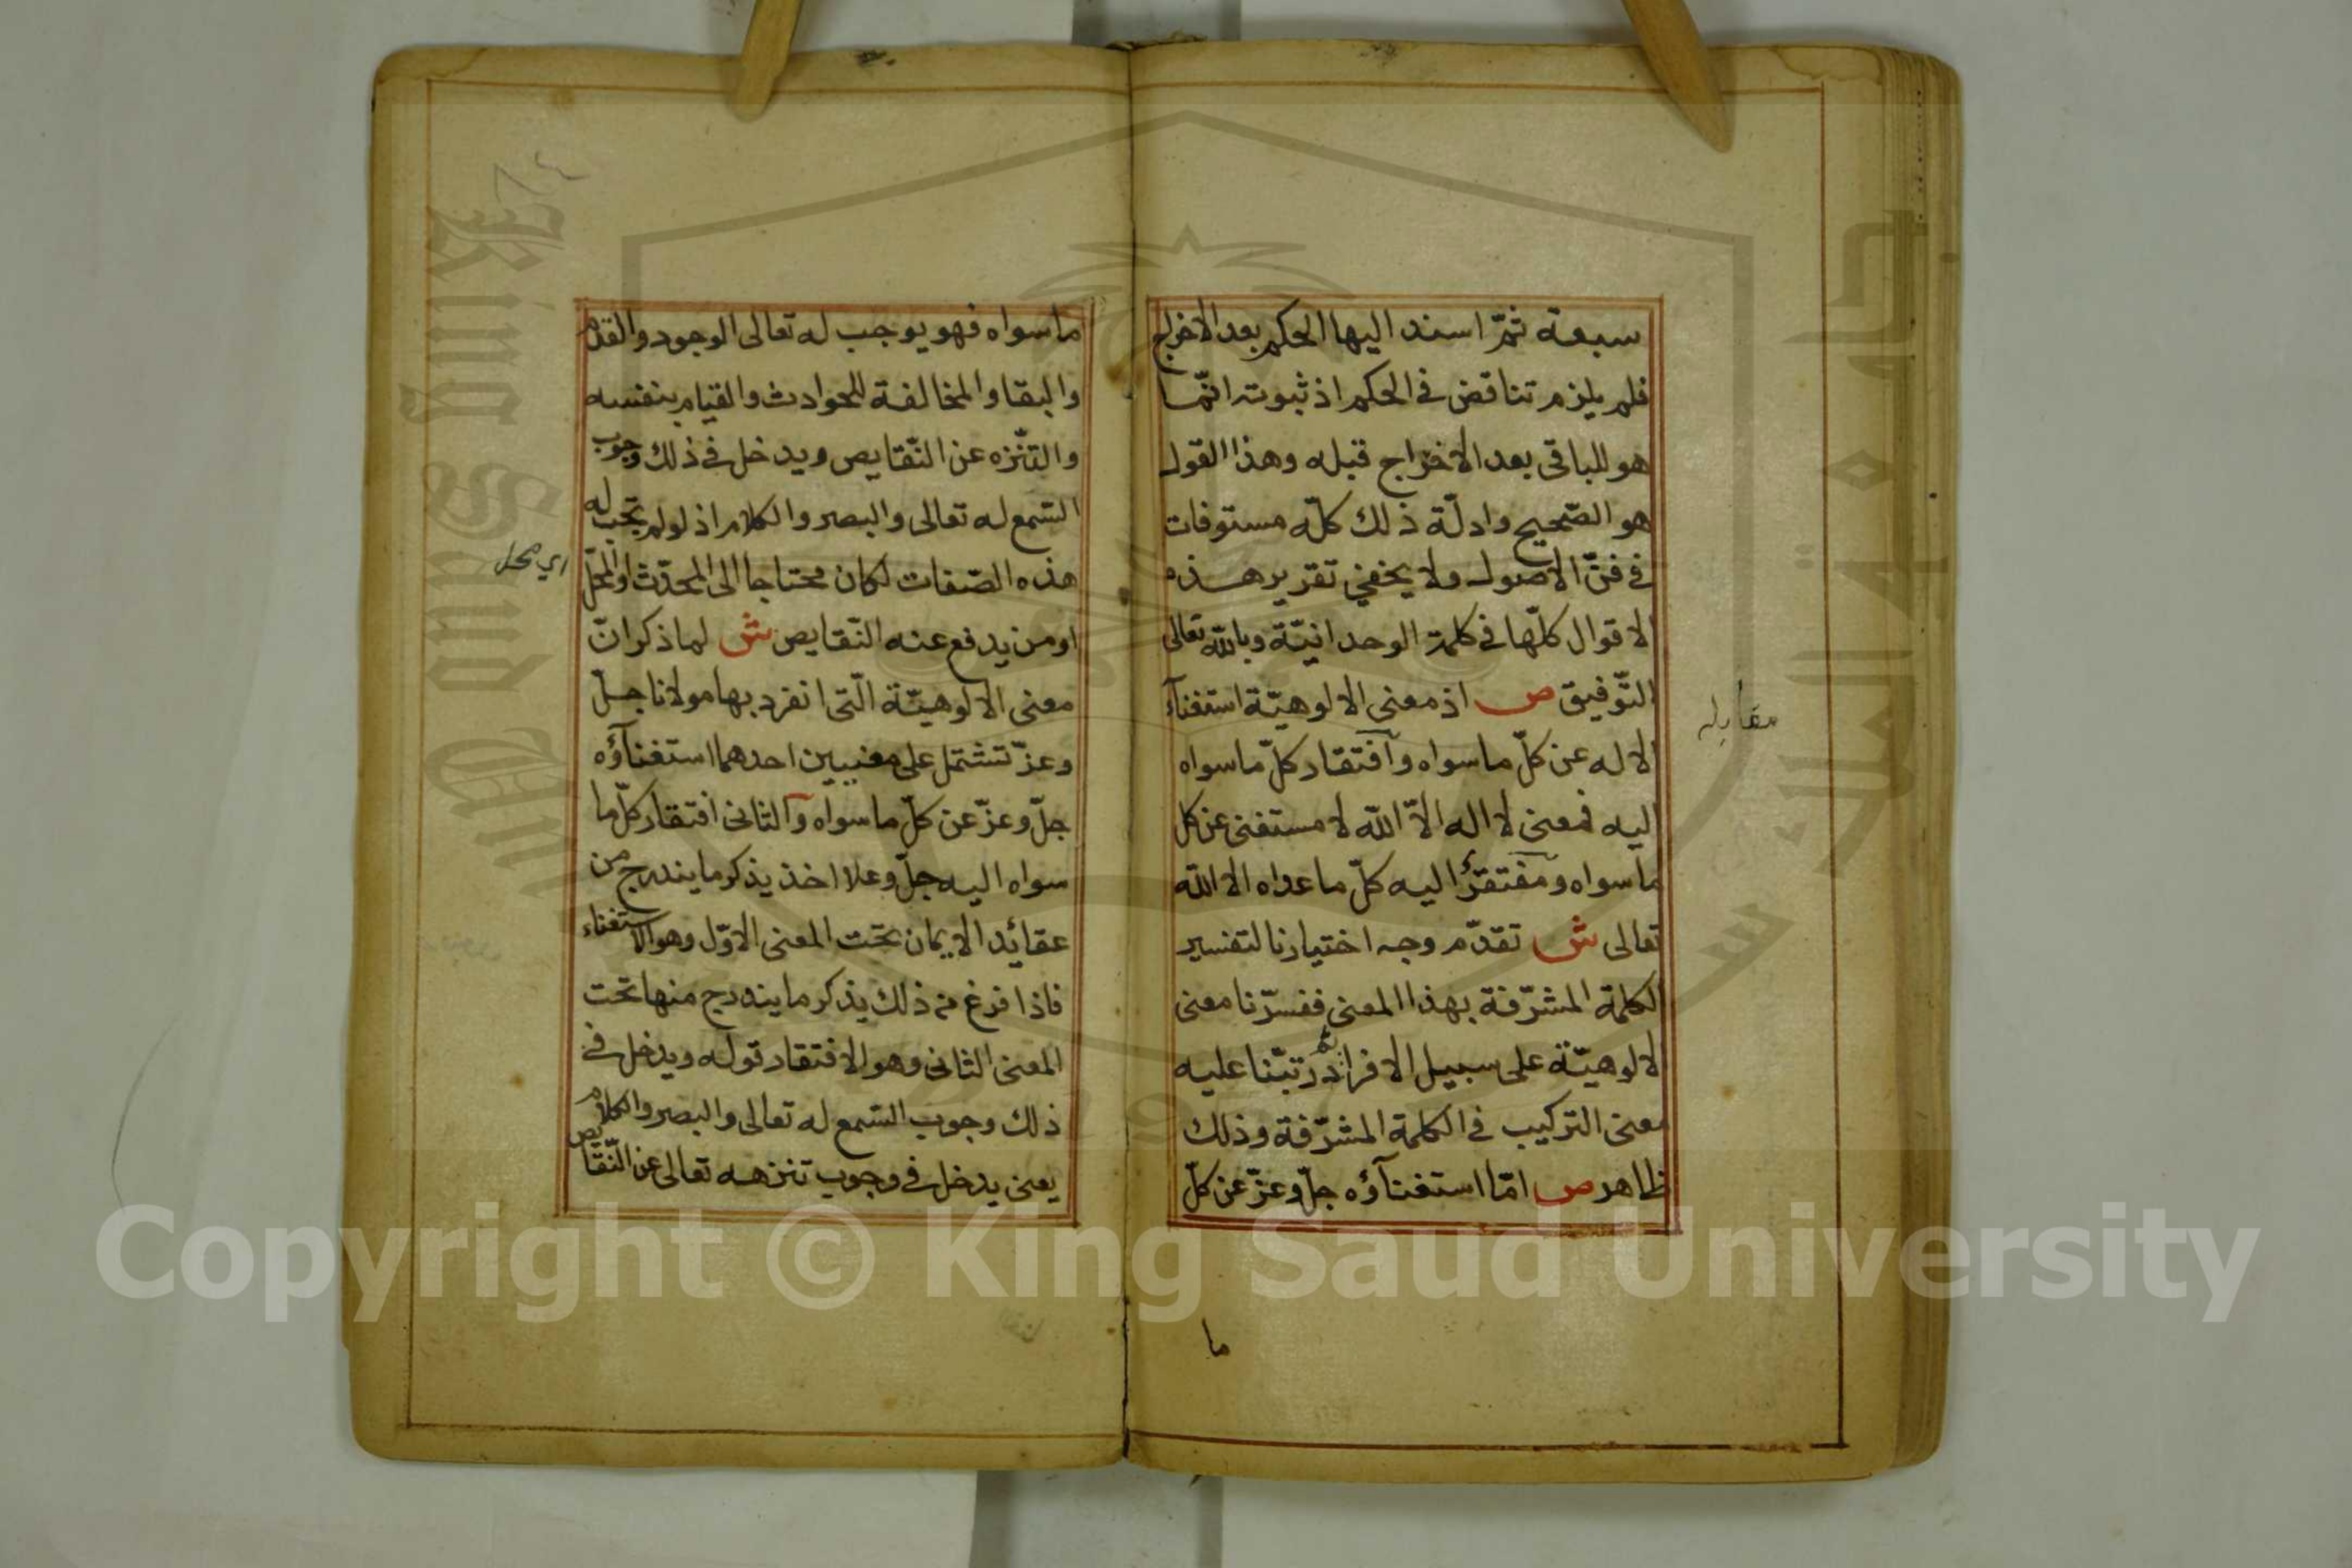 سبعة ثمّ اسند اليها الحكم بعد الاخراج
فلم يلزم تناقض في الحكم اذ ثبوته انّما
هو للباقى بعد الاخراج قبله وهذا القول
هو الصّحيح وادلّة ذلك كلّه مستوفات
في فنّ الاصول ولا يخفى تقرير هذه
الاقوال كلّها في كلمة الوحدانيّة وبالله تعالى
التّوفيق ص اذ معنى الالوهيّة استغنآء
الاله عن كلّ ما سواه وافتقار كلّ ما سواه
اليه فمعنى لا اله الّا الله لا مستغنى عن كل
ما سواه ومفتقرًا اليه كلّ ما عداه الا الله
تعالى ش تقدّم وجه اختيارنا لتفسير
الكلمة المشرّفة بهذا المعنى ففسّرنا معنى
الالوهيّة على سبيل الافراد ثم رتبّنا عليه
معنى التركيب في الكلمة المشرّفة وذلك
ظاهر ص امّا استغنآؤه جلّ وعزّ عن كلّ
ما
مقابله
ما سواه فهو يوجب له تعالى الوجود والقدم
والبقا والمخالفة للحوادث والقيام بنفسه
والتنّزه عن النّقايص ويدخل في ذلك وجوب
السّمع له تعالى والبصر والكلام اذ لو لم تجب له
هذه الصّفات لكان محتاجا الى المحدّث او المحلّ
او من يدفع عنه النّقايص ش لما ذكر انّ
معنى الالوهيّة الّتى انفرد بها مولانا جلّ
وعزّ تشتمل على معنيين احدهما استغنآؤه
جلّ وعزّ عن كلّ ما سواه والثانى افتقار كلّ ما
سواه اليه جلّ وعلا اخذ يذكر ما يندرج من
عقائد الايمان تحت المعنى الاوّل وهو الاستغناء
فاذا فرغ من ذلك يذكر ما يندرج منها تحت
المعنى الثانى وهو الافتقار قوله ويدخل في
ذلك وجوب السّمع له تعالى والبصر والكلام
يعنى يدخل في وجوب تنزهه تعالى عن النّقايص
اي محل
Copyright © King Saud University